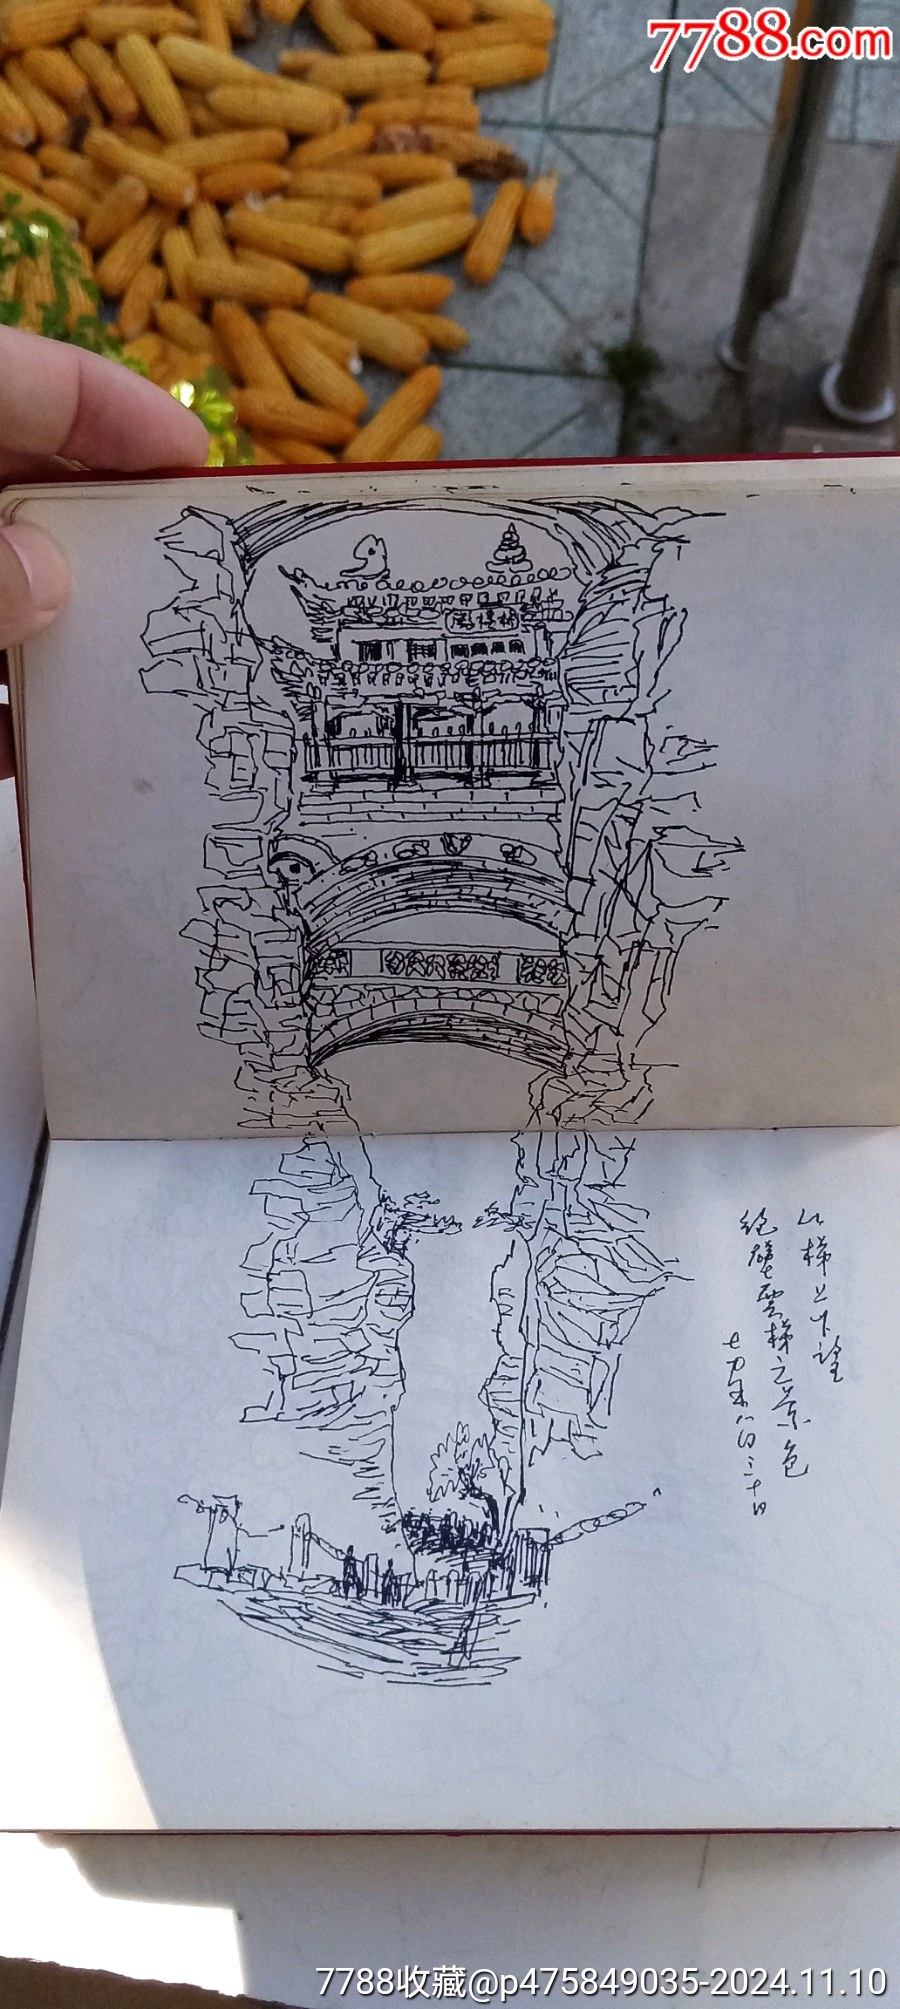 7788.com
从梯上下望
绝壁雲梯之景色
七九年八月三十日
7788收藏@p475849035-2024.11.10